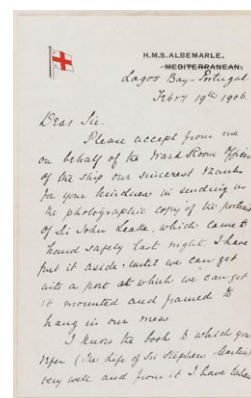 H.M.S. ALBEMARLE.
MEDITERRANEAN.
Lagos Bay - Portugal.
Febry 19th 1906.
Dear Sir.
Please accept from me
on behalf of the Ward Room Officers
of the ship our sincerest thanks
for your kindness in sending us
the photographic copy of the portrait
of Sir John Leake, which came to
hand safely last night. I have
put it aside until we can get
into a port at which we can get
it mounted and framed to
hang in our mess.
I know the book to which you
refer (The Life of Sir Stephen Martin)
very well and from it I have taken